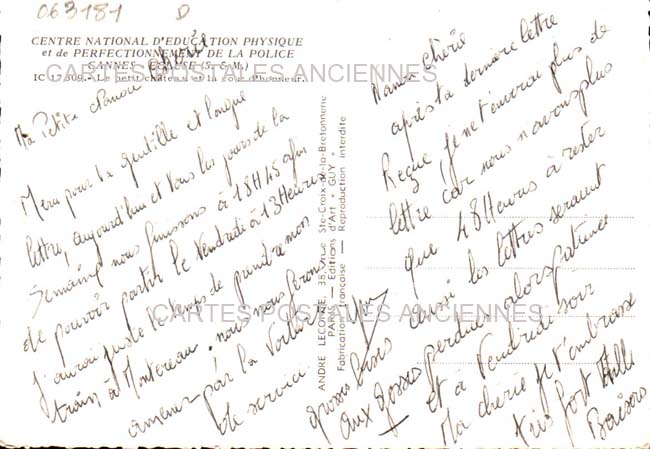 063181 D
CENTRE NATIONAL D'EDUCATION PHYSIQUE
et de PERFECTIONNEMENT DE LA POLICE
CANNES - ECLUSE (S. & M.)
IC 17.309. - Le petit château et la cour d'honneur.
CARTES POSTALES ANCIENNES
Ma Petite Nanou Chérie
Merci pour ta gentille et longue
lettre, aujourd'hui et tous les jours de la
Semaine nous finissons à 18H45 afin
de pouvoir partir le Vendredi à 13 Heures
J'aurai juste le temps de prendre mon
train à Montereau. nous nous ferons
amener par la Voiture
de service.
ANDRE LECONTE, 38, rue Ste-Croix-de-la-Bretonnerie
PARIS - Editions d'Art "GUY"
Fabrication Française - Reproduction interdite
Nanou Chérie
après ta dernière lettre
Reçue, je ne t'enverrai plus de
lettre car nous n'avons plus
que 48 Heures à rester
aussi les lettres seraient
perdues alors patience
et à Vendredi soir
Ma chérie je t'embrasse
très fort Mille
Baisers
grosses bises
aux gosses
CARTES POSTALES ANCIENNES